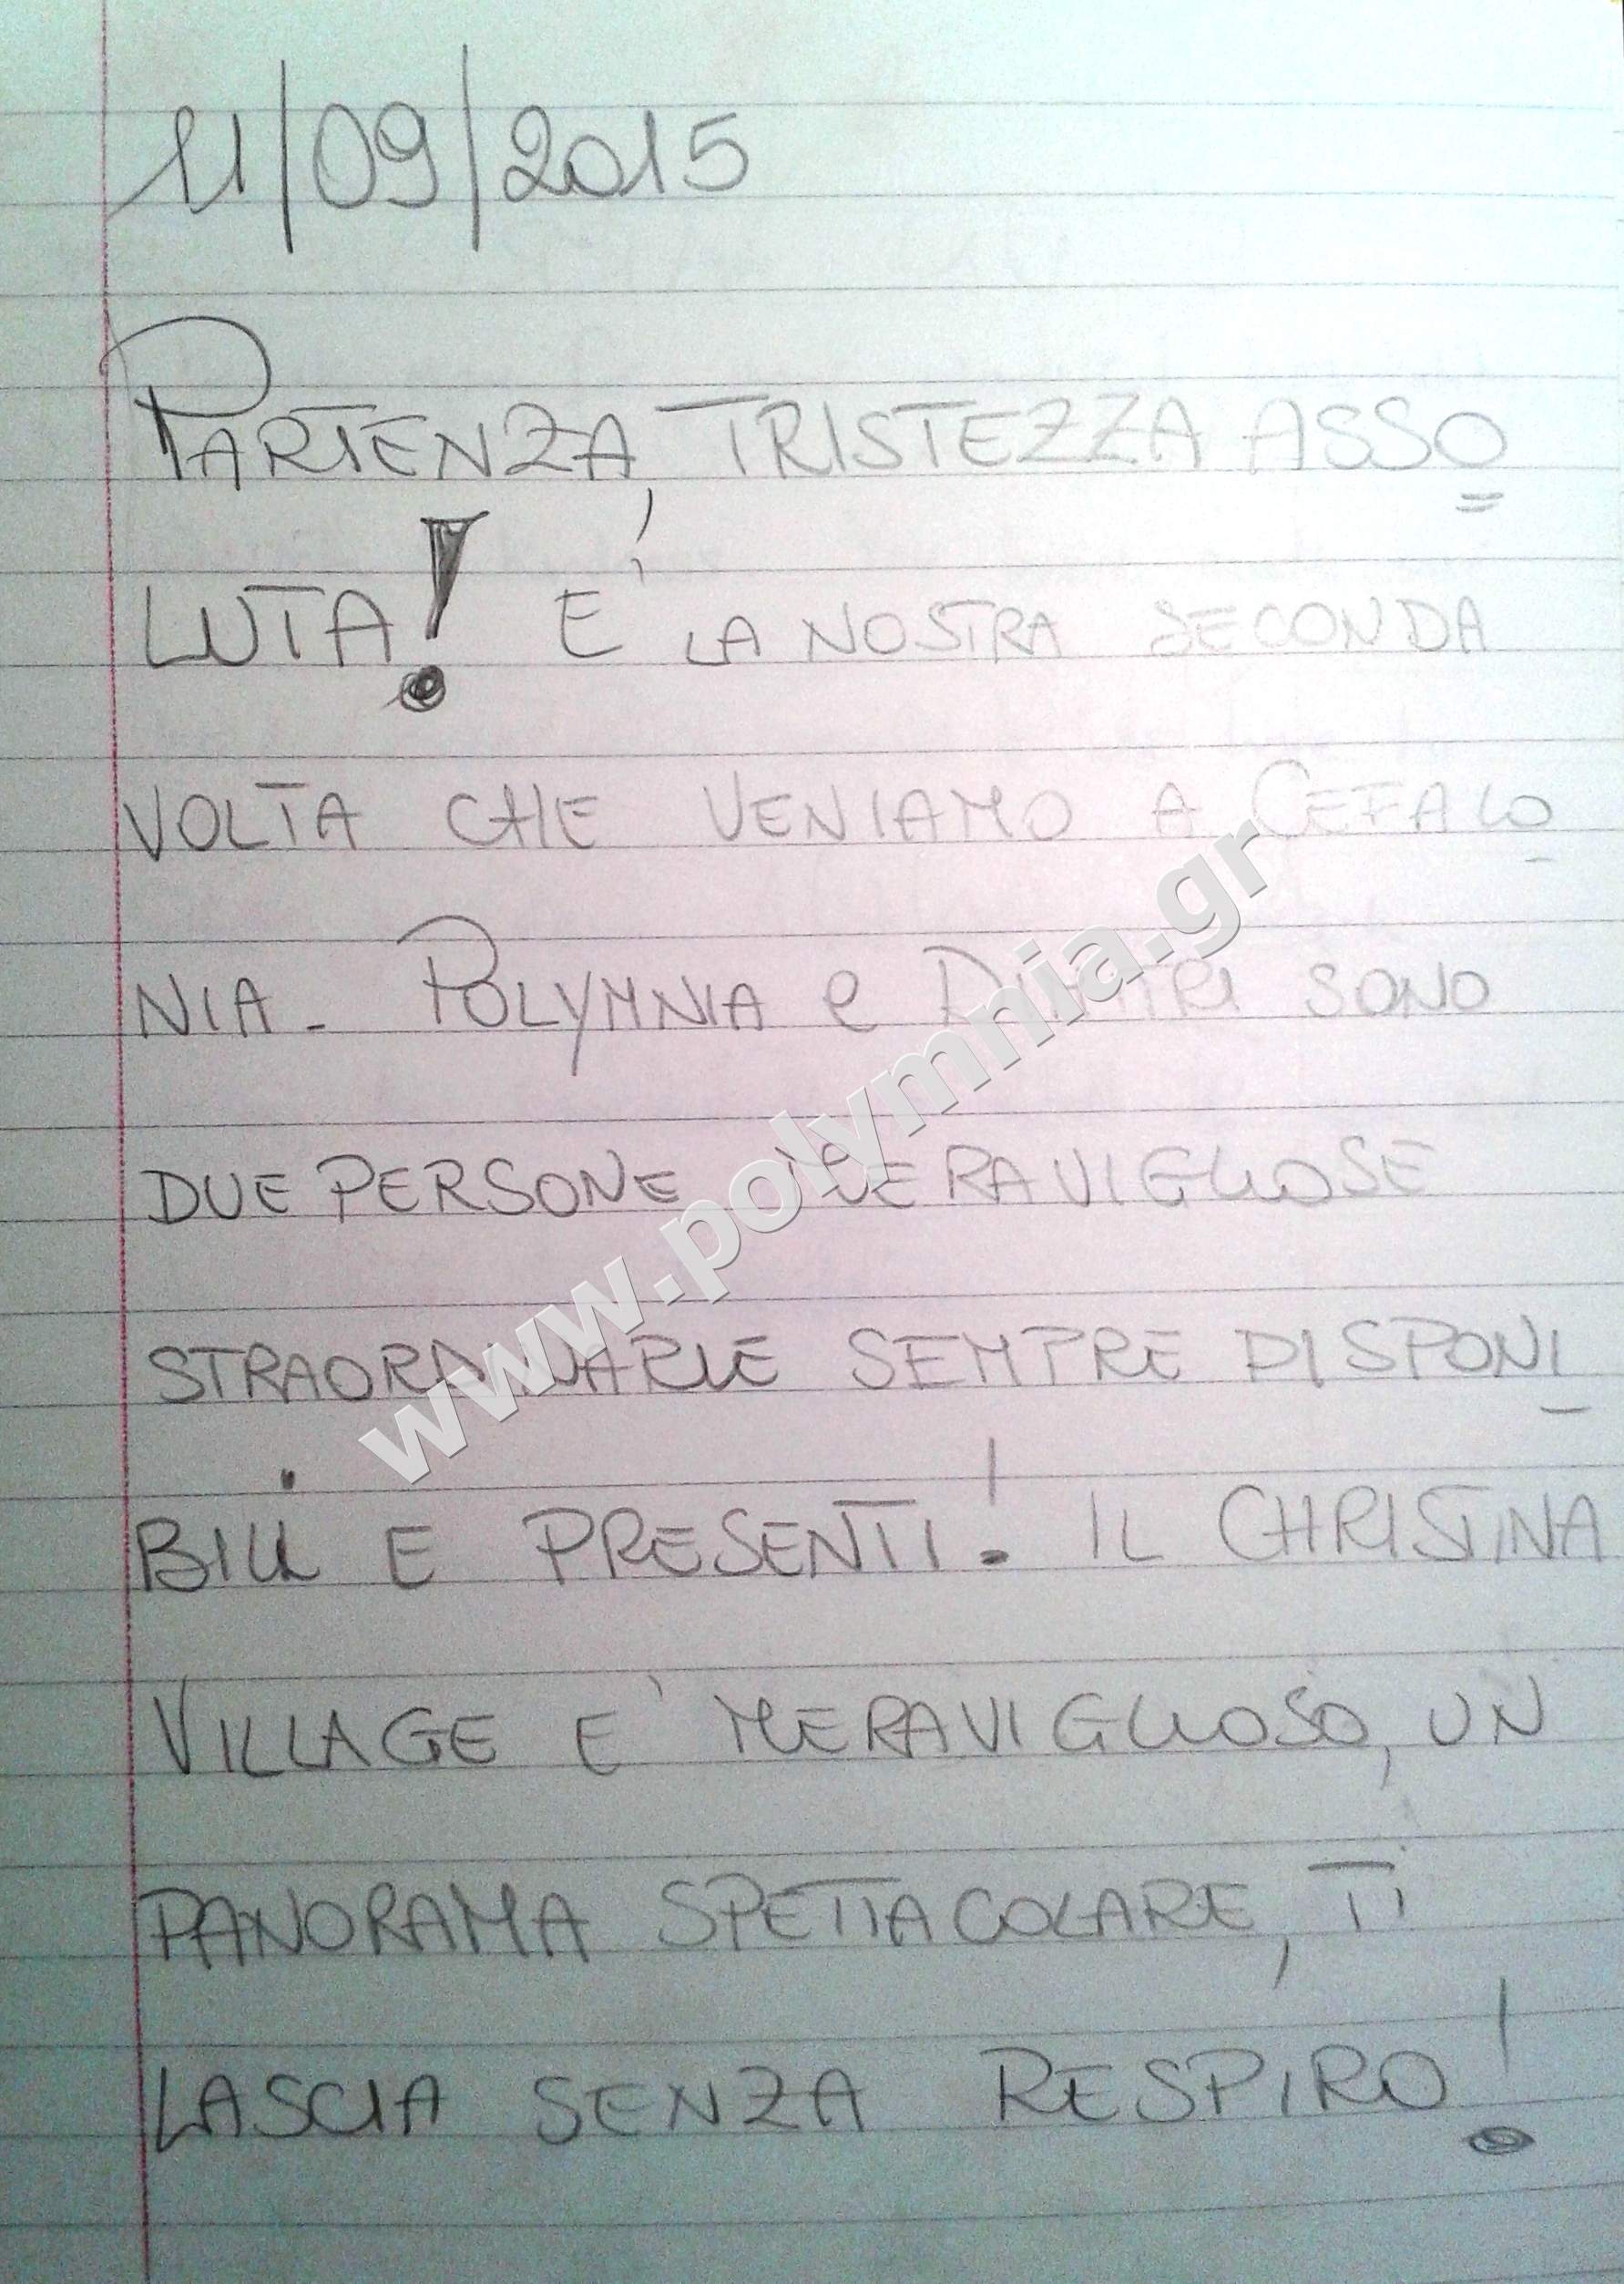 11/09/2015
PARTENZA, TRISTEZZA ASSO=
LUTA! E' LA NOSTRA SECONDA
VOLTA CHE VENIAMO A CEFALO-
NIA - POLYMNIA e DIMITRI SONO
DUE PERSONE MERAVIGLIOSE
STRAORDINARIE SEMPRE DISPONI-
BILI E PRESENTI! IL CHRISTINA
VILLAGE E' MERAVIGLIOSO, UN
PANORAMA SPETTACOLARE, TI
LASCIA SENZA RESPIRO!
www.polymnia.gr